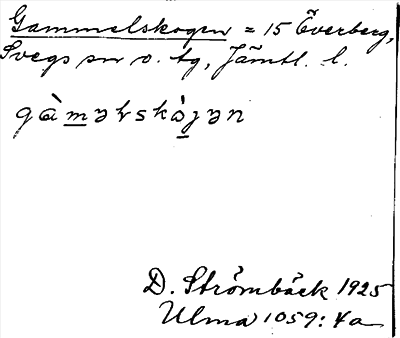 Gammelskogen = 15 Överberg,
Svegs sn o. tg, Jämtl. l.
gàməɫskòjən
D. Strömbäck 1925
Ulma 1059: 4a